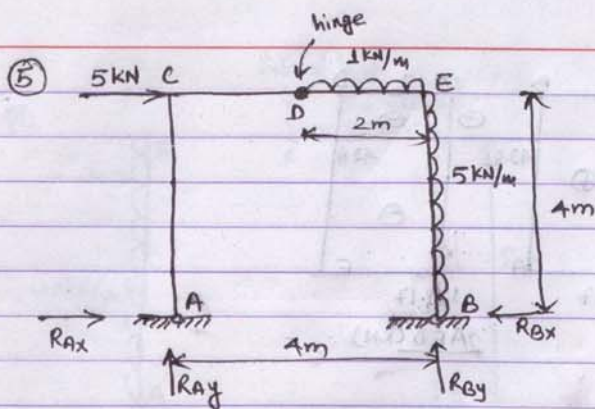 hinge
1kN/m
⑤ 5 kN C D E
2m
5 kN/m
4m
A B
RAx RBx
4m
RAy RBy